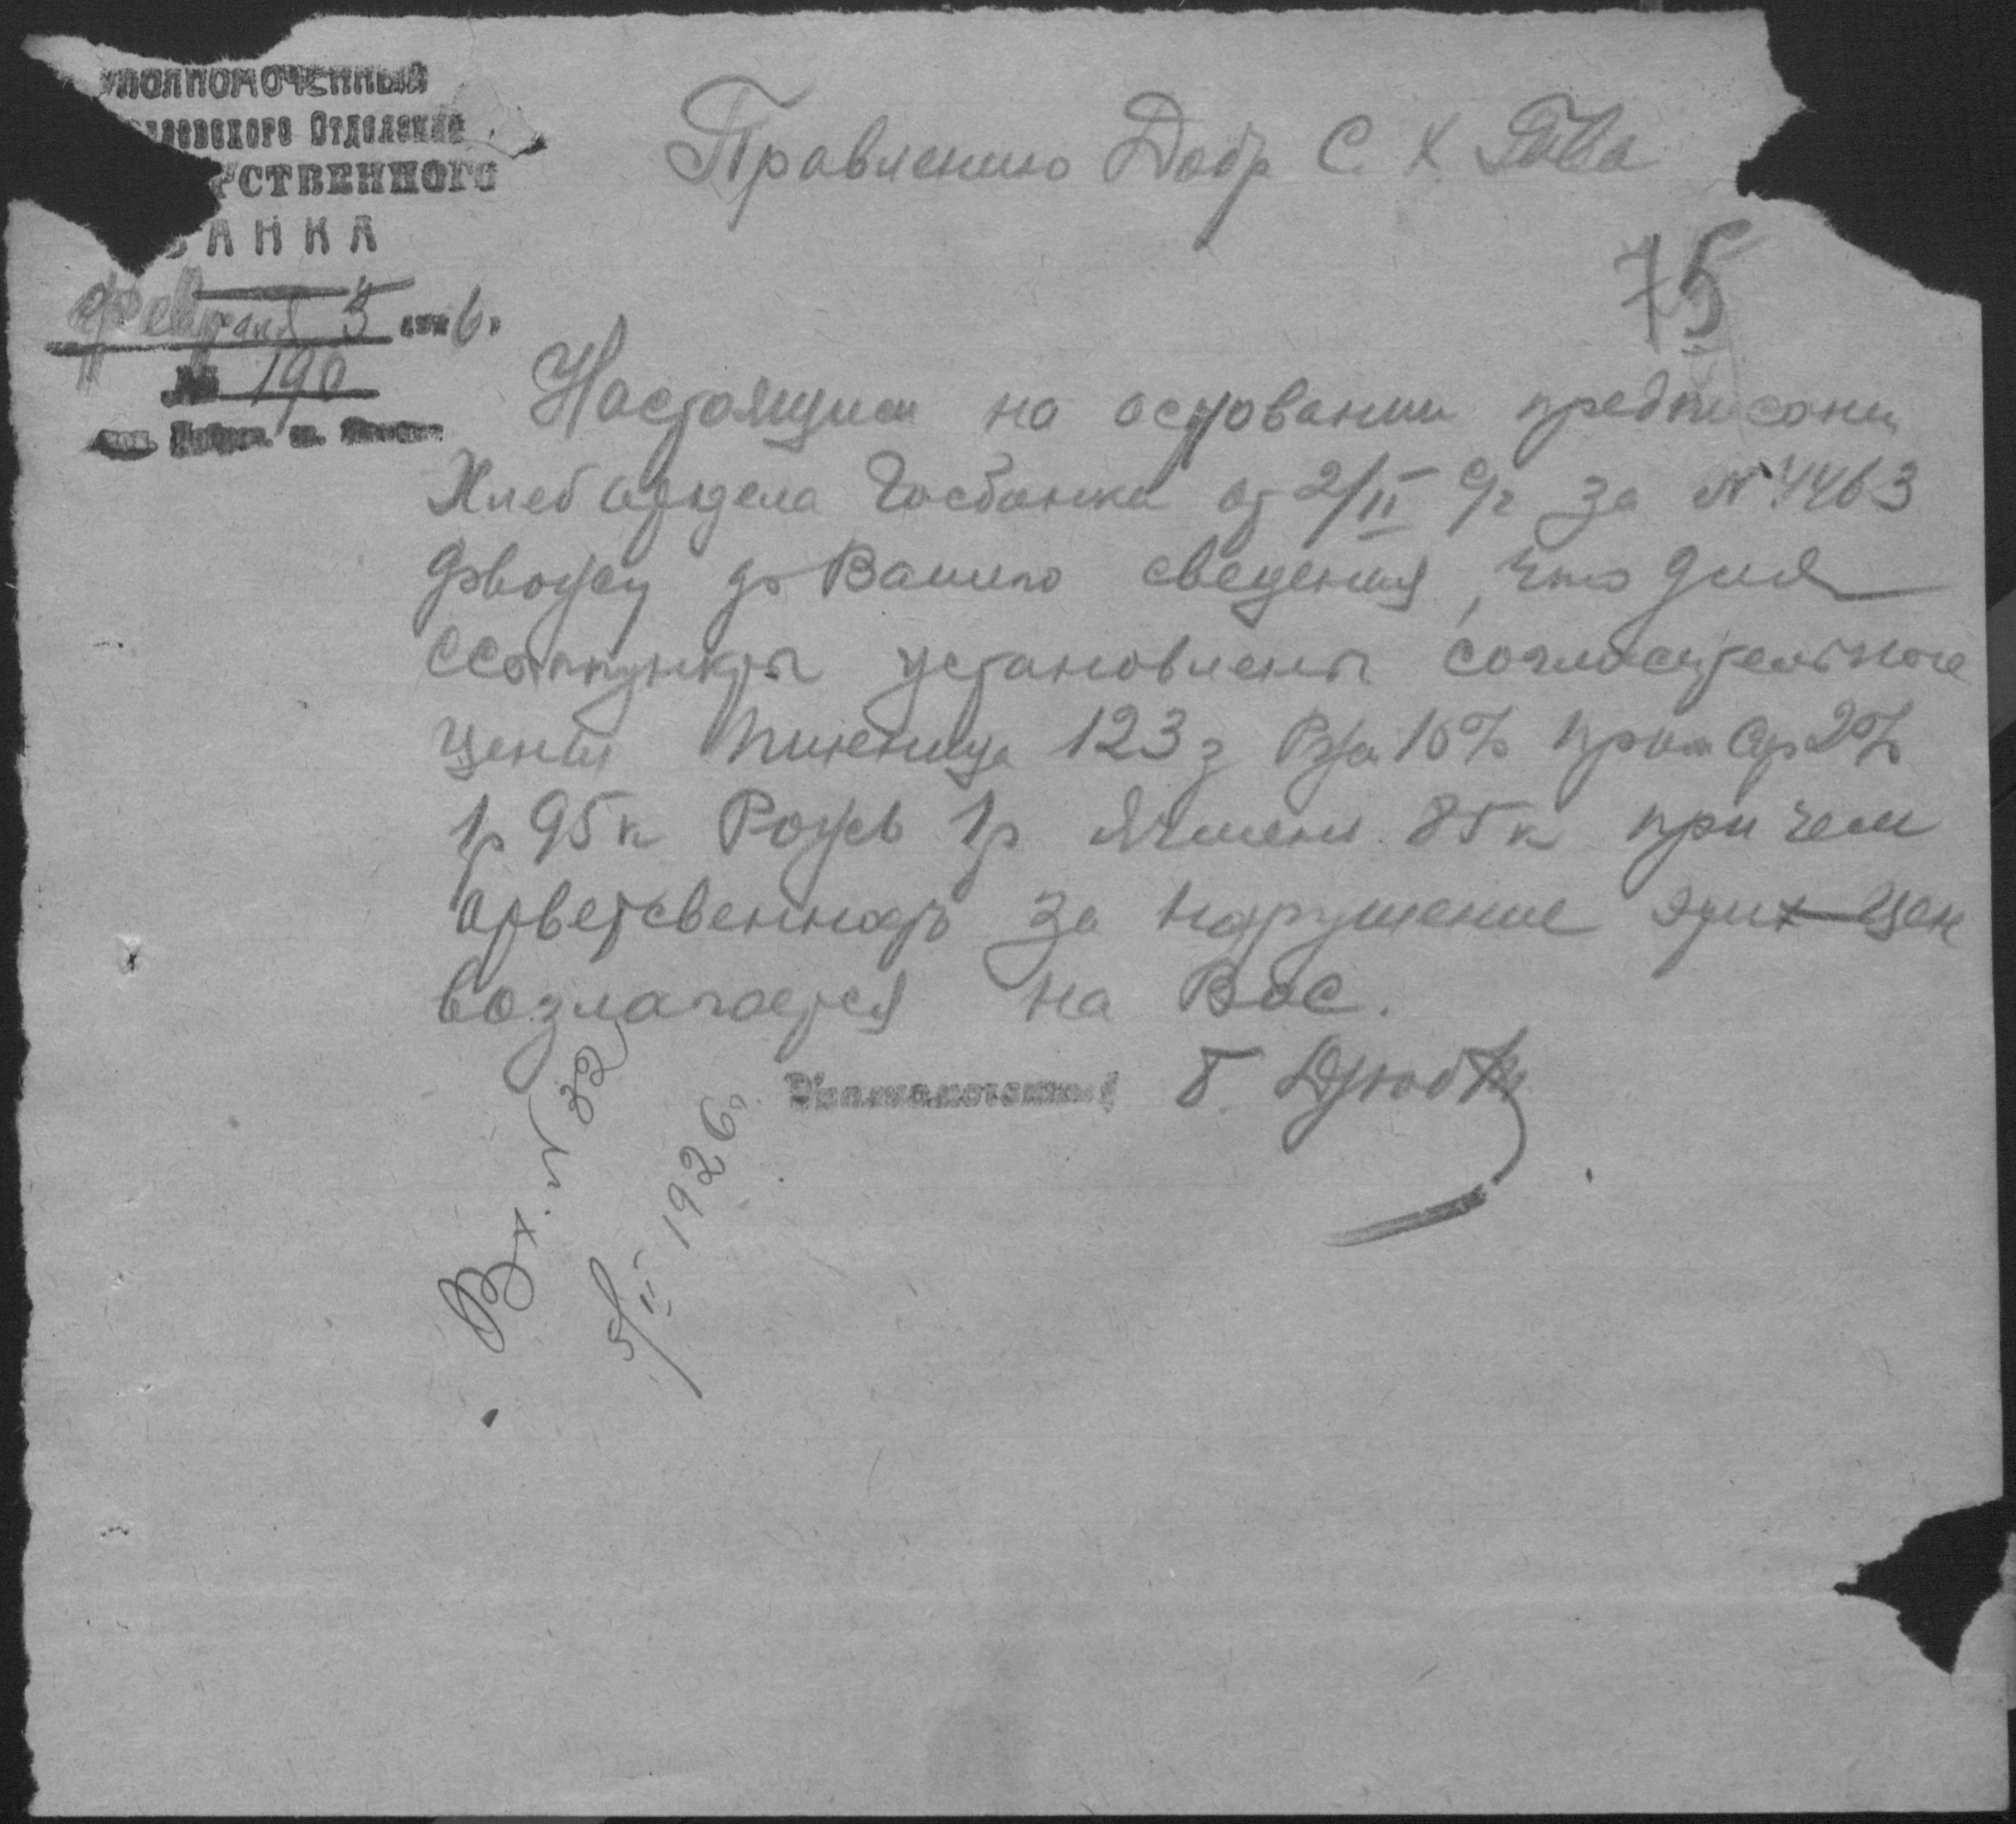 УПОЛНОМОЧЕННЫЙ
Отделения
СТВЕННОГО
БАНКА
февраля 5 6.
№ 190
Правлению Добр С. Х. Т-ва
75
Настоящим на основании предписани
Хлеботдела Госбанка от 2/II с/г за № 4463
довожу до Вашего сведения, что для
ссыппункты установлены согласительные
цены Пшеница 123 з Ржа 10% прим Ср 2%
1р 95к Рожь 1р Ячмень 85к при чем
ответсвенность за нарушение этих цен
возлагается на Вас.
Уполномоченный Б.
Вх. № 32
5/II 1926.